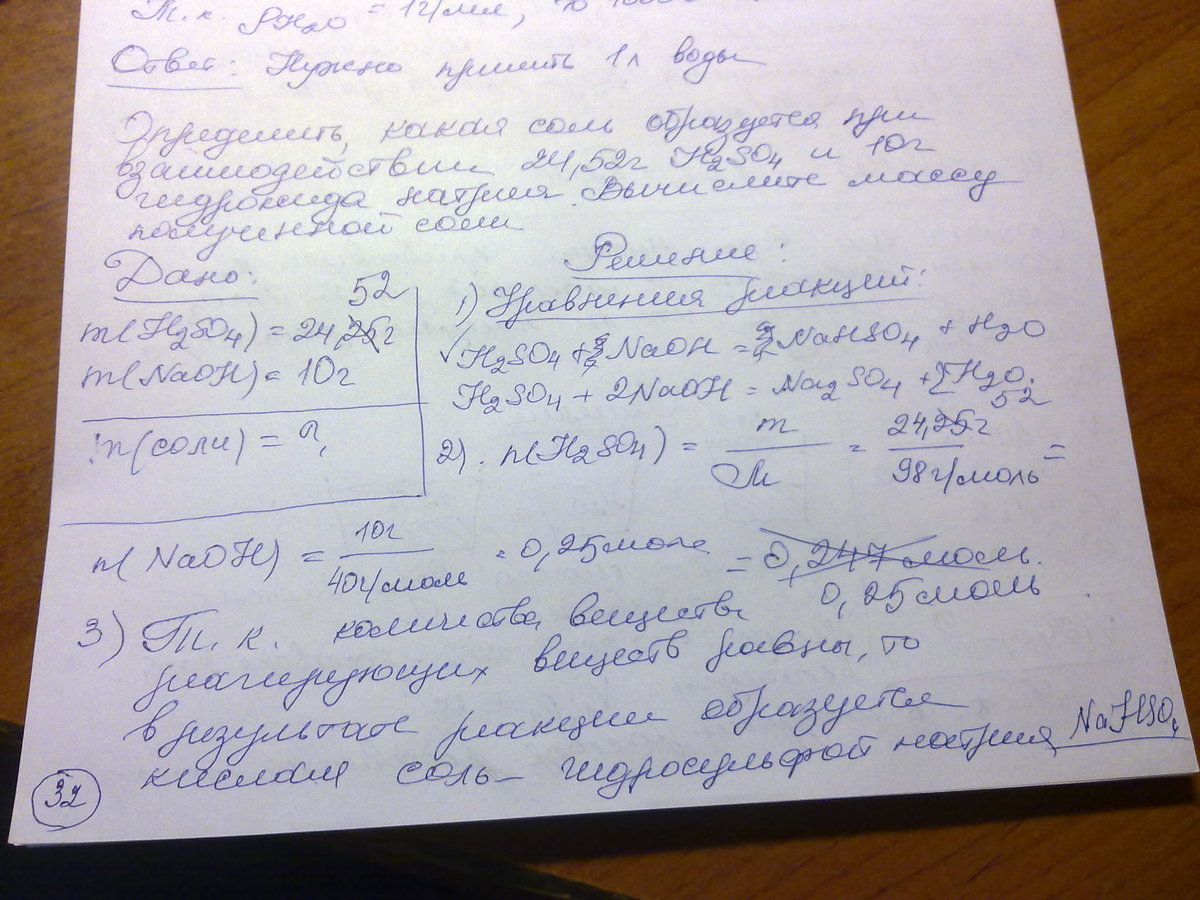 Т.к. ρH₂O = 1г/мл, то
Ответ: Нужно прилить 1л воды
Определить, какая соль образуется при
взаимодействии 24,52г H₂SO₄ и 10г
гидроксида натрия. Вычислите массу
полученной соли
Дано:
52
m(H₂SO₄) = 24,25г
m(NaOH) = 10г
m(соли) = ?
Решение:
1) Уравнения реакций:
✓ H₂SO₄ + NaOH = NaHSO₄ + H₂O
H₂SO₄ + 2NaOH = Na₂SO₄ + H₂O.
2) n(H₂SO₄) = m / M = 24,25г 52 / 98г/моль =
= 0,247 моль.
0,25 моль
n(NaOH) = 10г / 40г/моль = 0,25 моль
3) Т.к. количества веществ
реагирующих веществ равны, то
в результате реакции образуется
кислая соль – гидросульфат натрия NaHSO₄
32